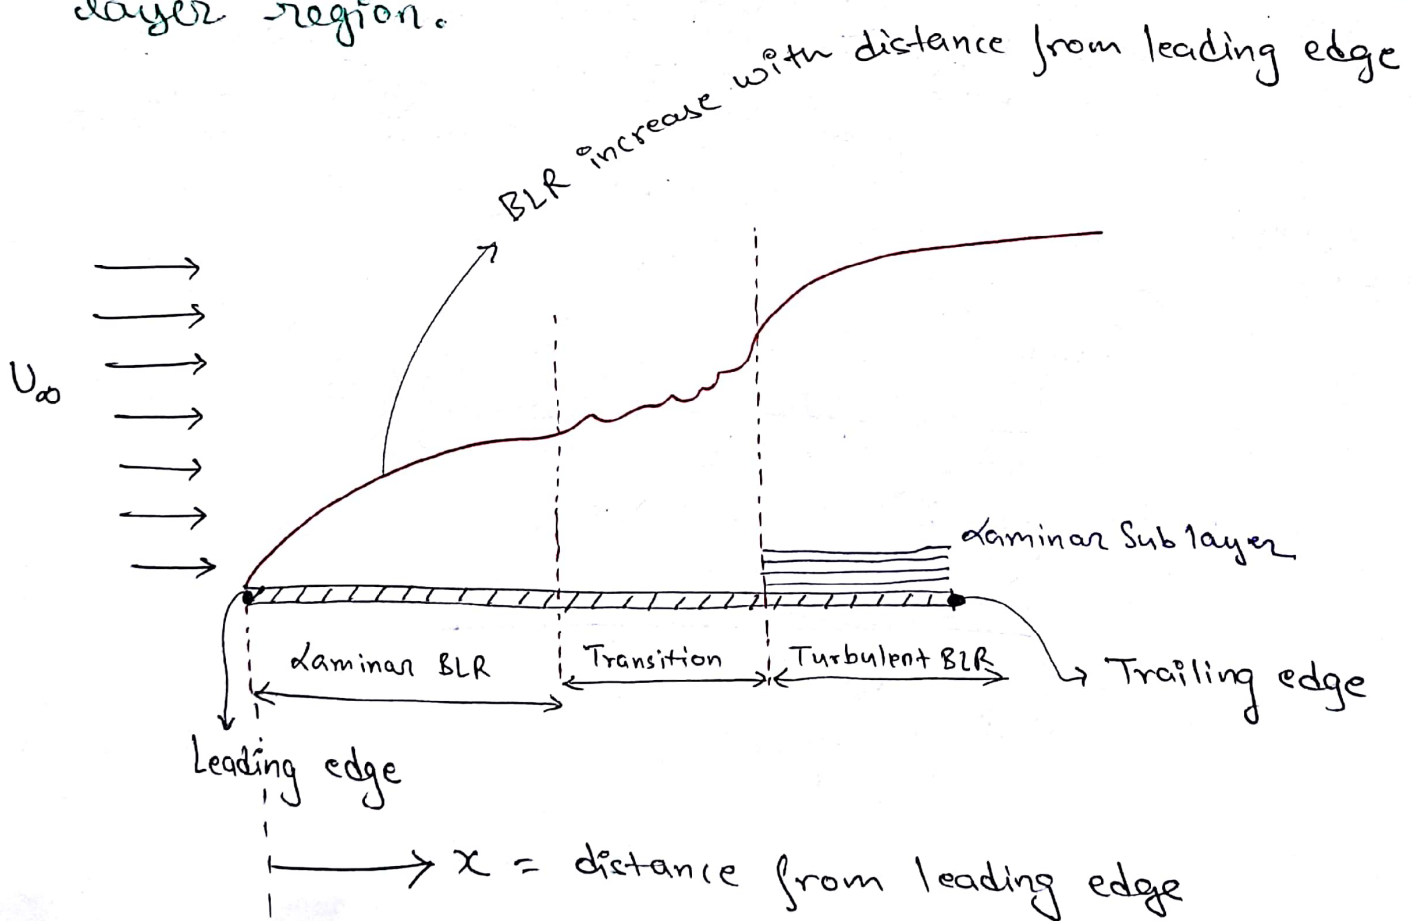 layer region.
BLR increase with distance from leading edge
U∞
Laminar Sub layer
Laminar BLR
Transition
Turbulent BLR
Trailing edge
Leading edge
x = distance from leading edge